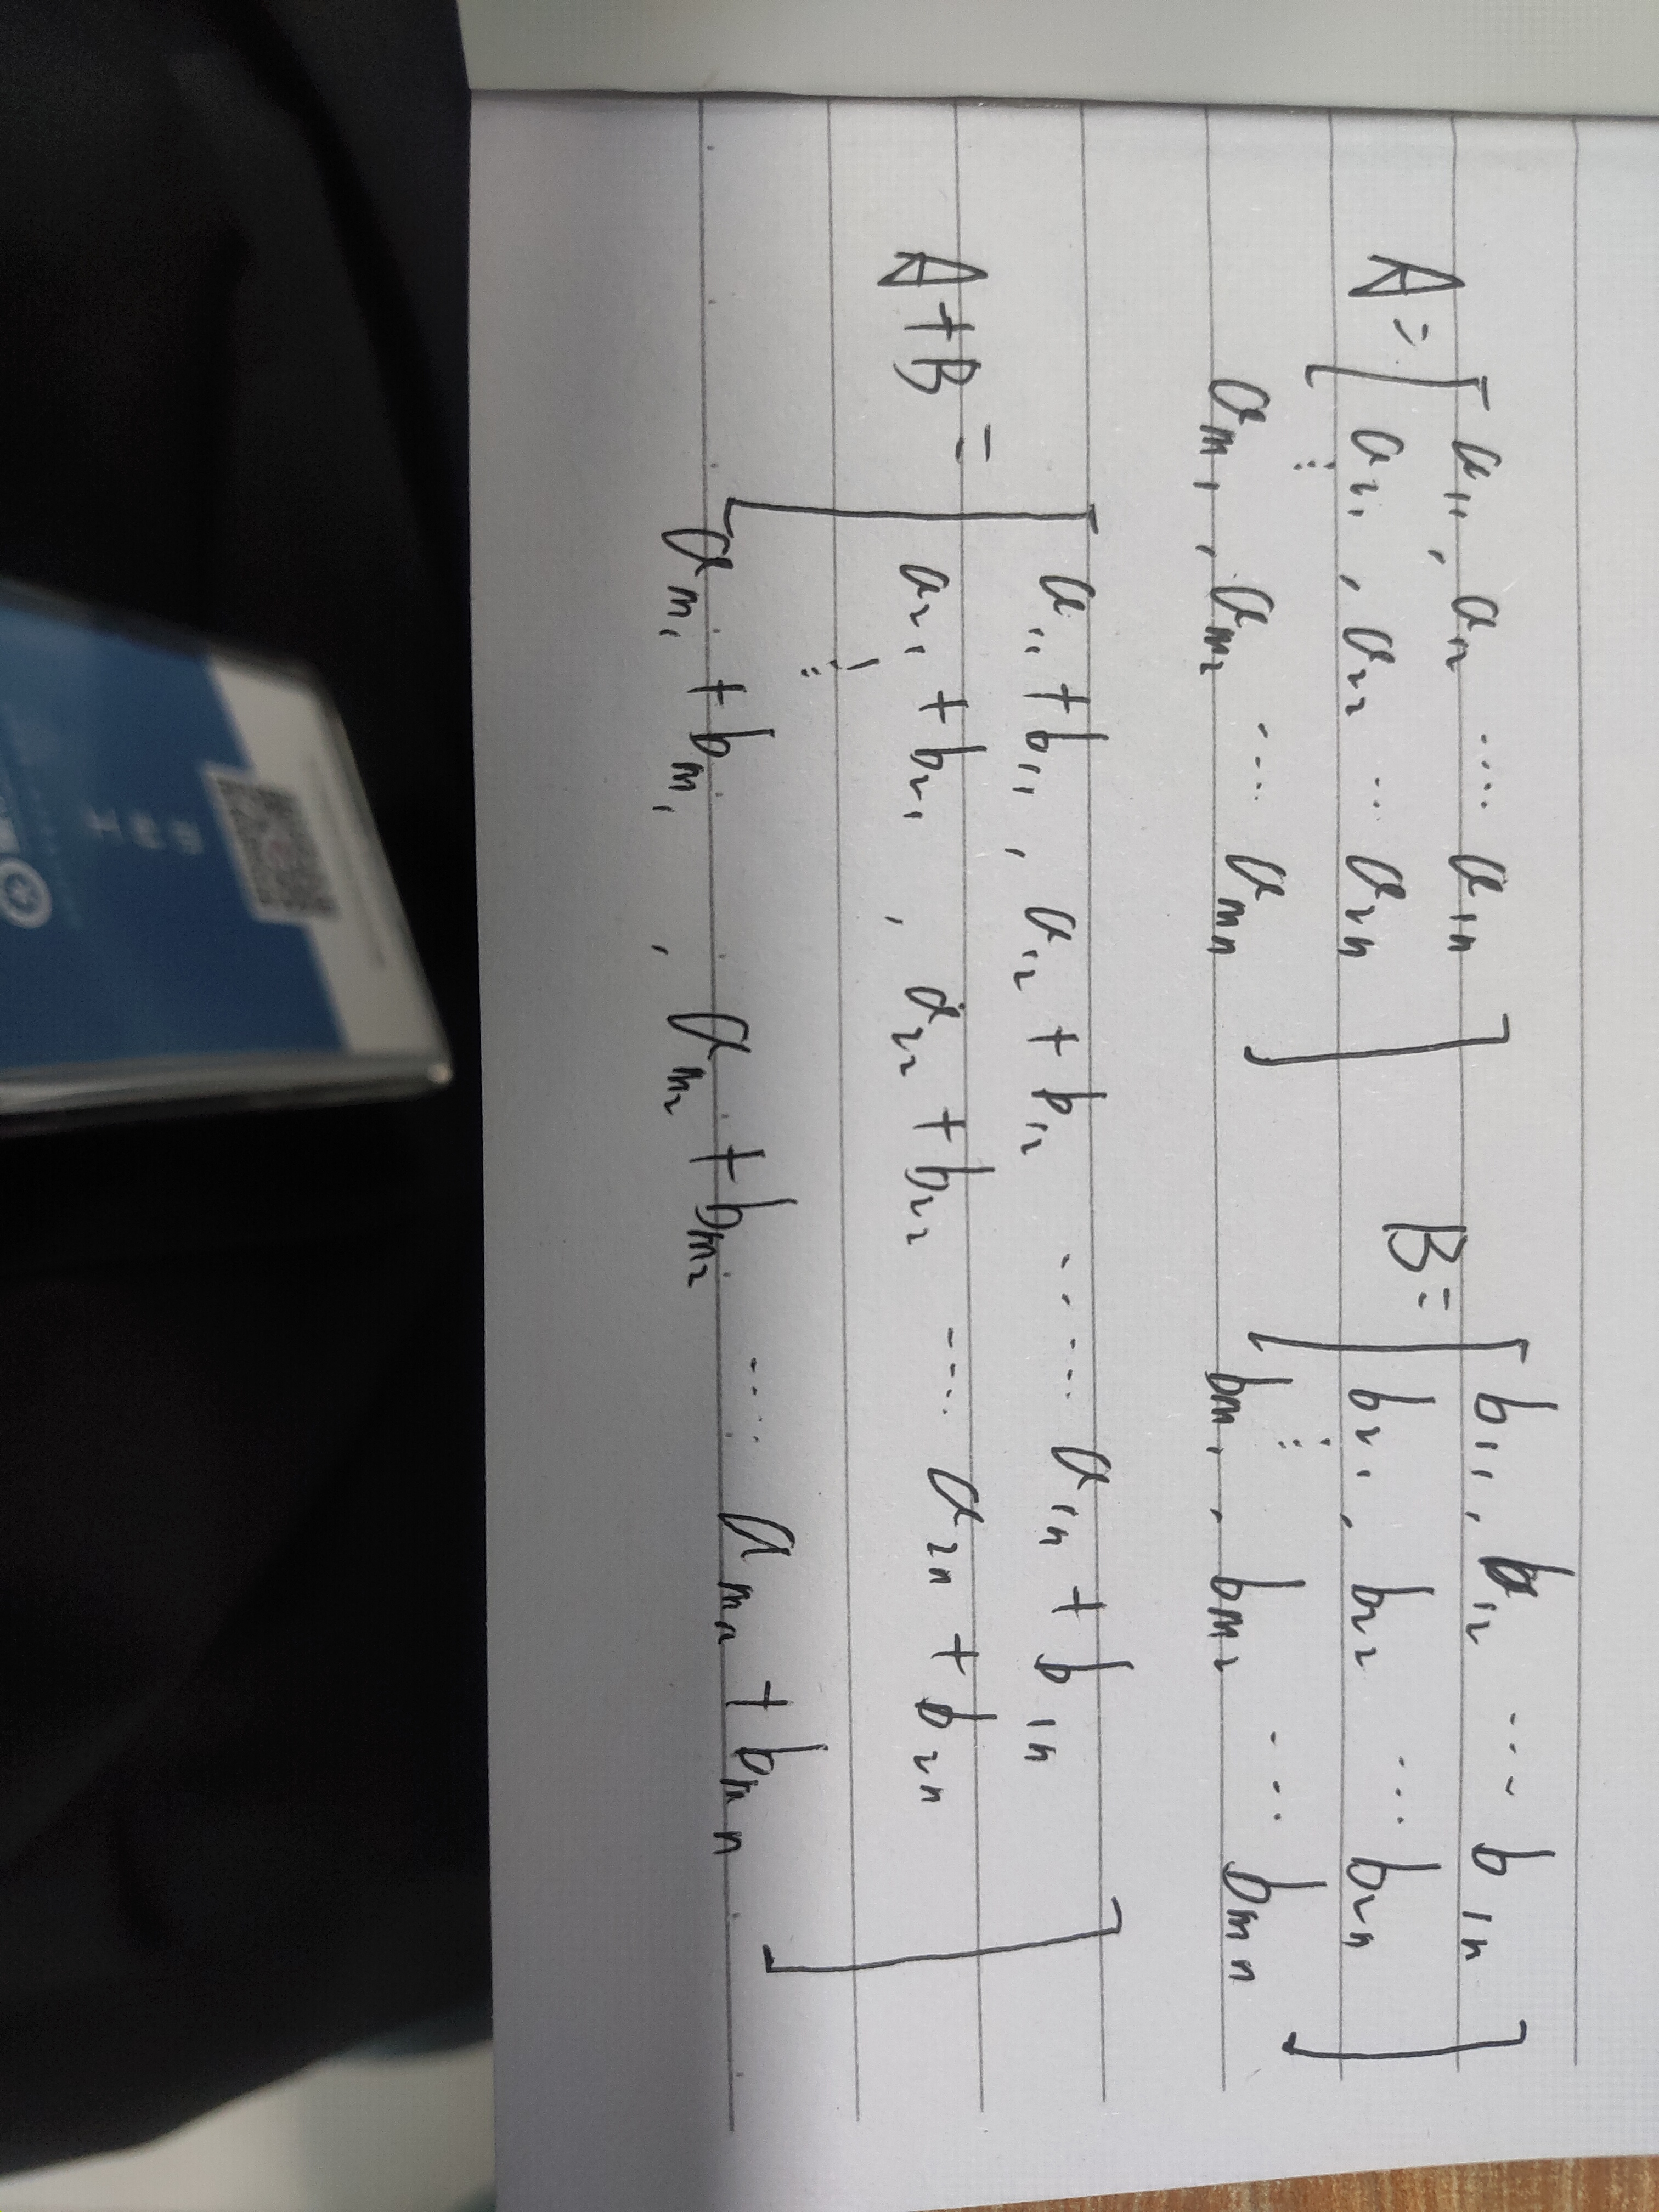 A = [ a₁₁, a₁₂ ... a₁ₙ ] B = [ b₁₁, b₁₂ ... b₁ₙ ]
a₂₁, a₂₂ ... a₂ₙ b₂₁, b₂₂ ... b₂ₙ
⋮ ⋮
aₘ₁, aₘ₂ ... aₘₙ bₘ₁, bₘ₂ ... bₘₙ
A+B = [ a₁₁+b₁₁, a₁₂+b₁₂ ..... a₁ₙ+b₁ₙ ]
a₂₁+b₂₁, a₂₂+b₂₂ .... a₂ₙ+b₂ₙ
⋮
aₘ₁+bₘ₁, aₘ₂+bₘ₂ .... aₘₙ+bₘₙ